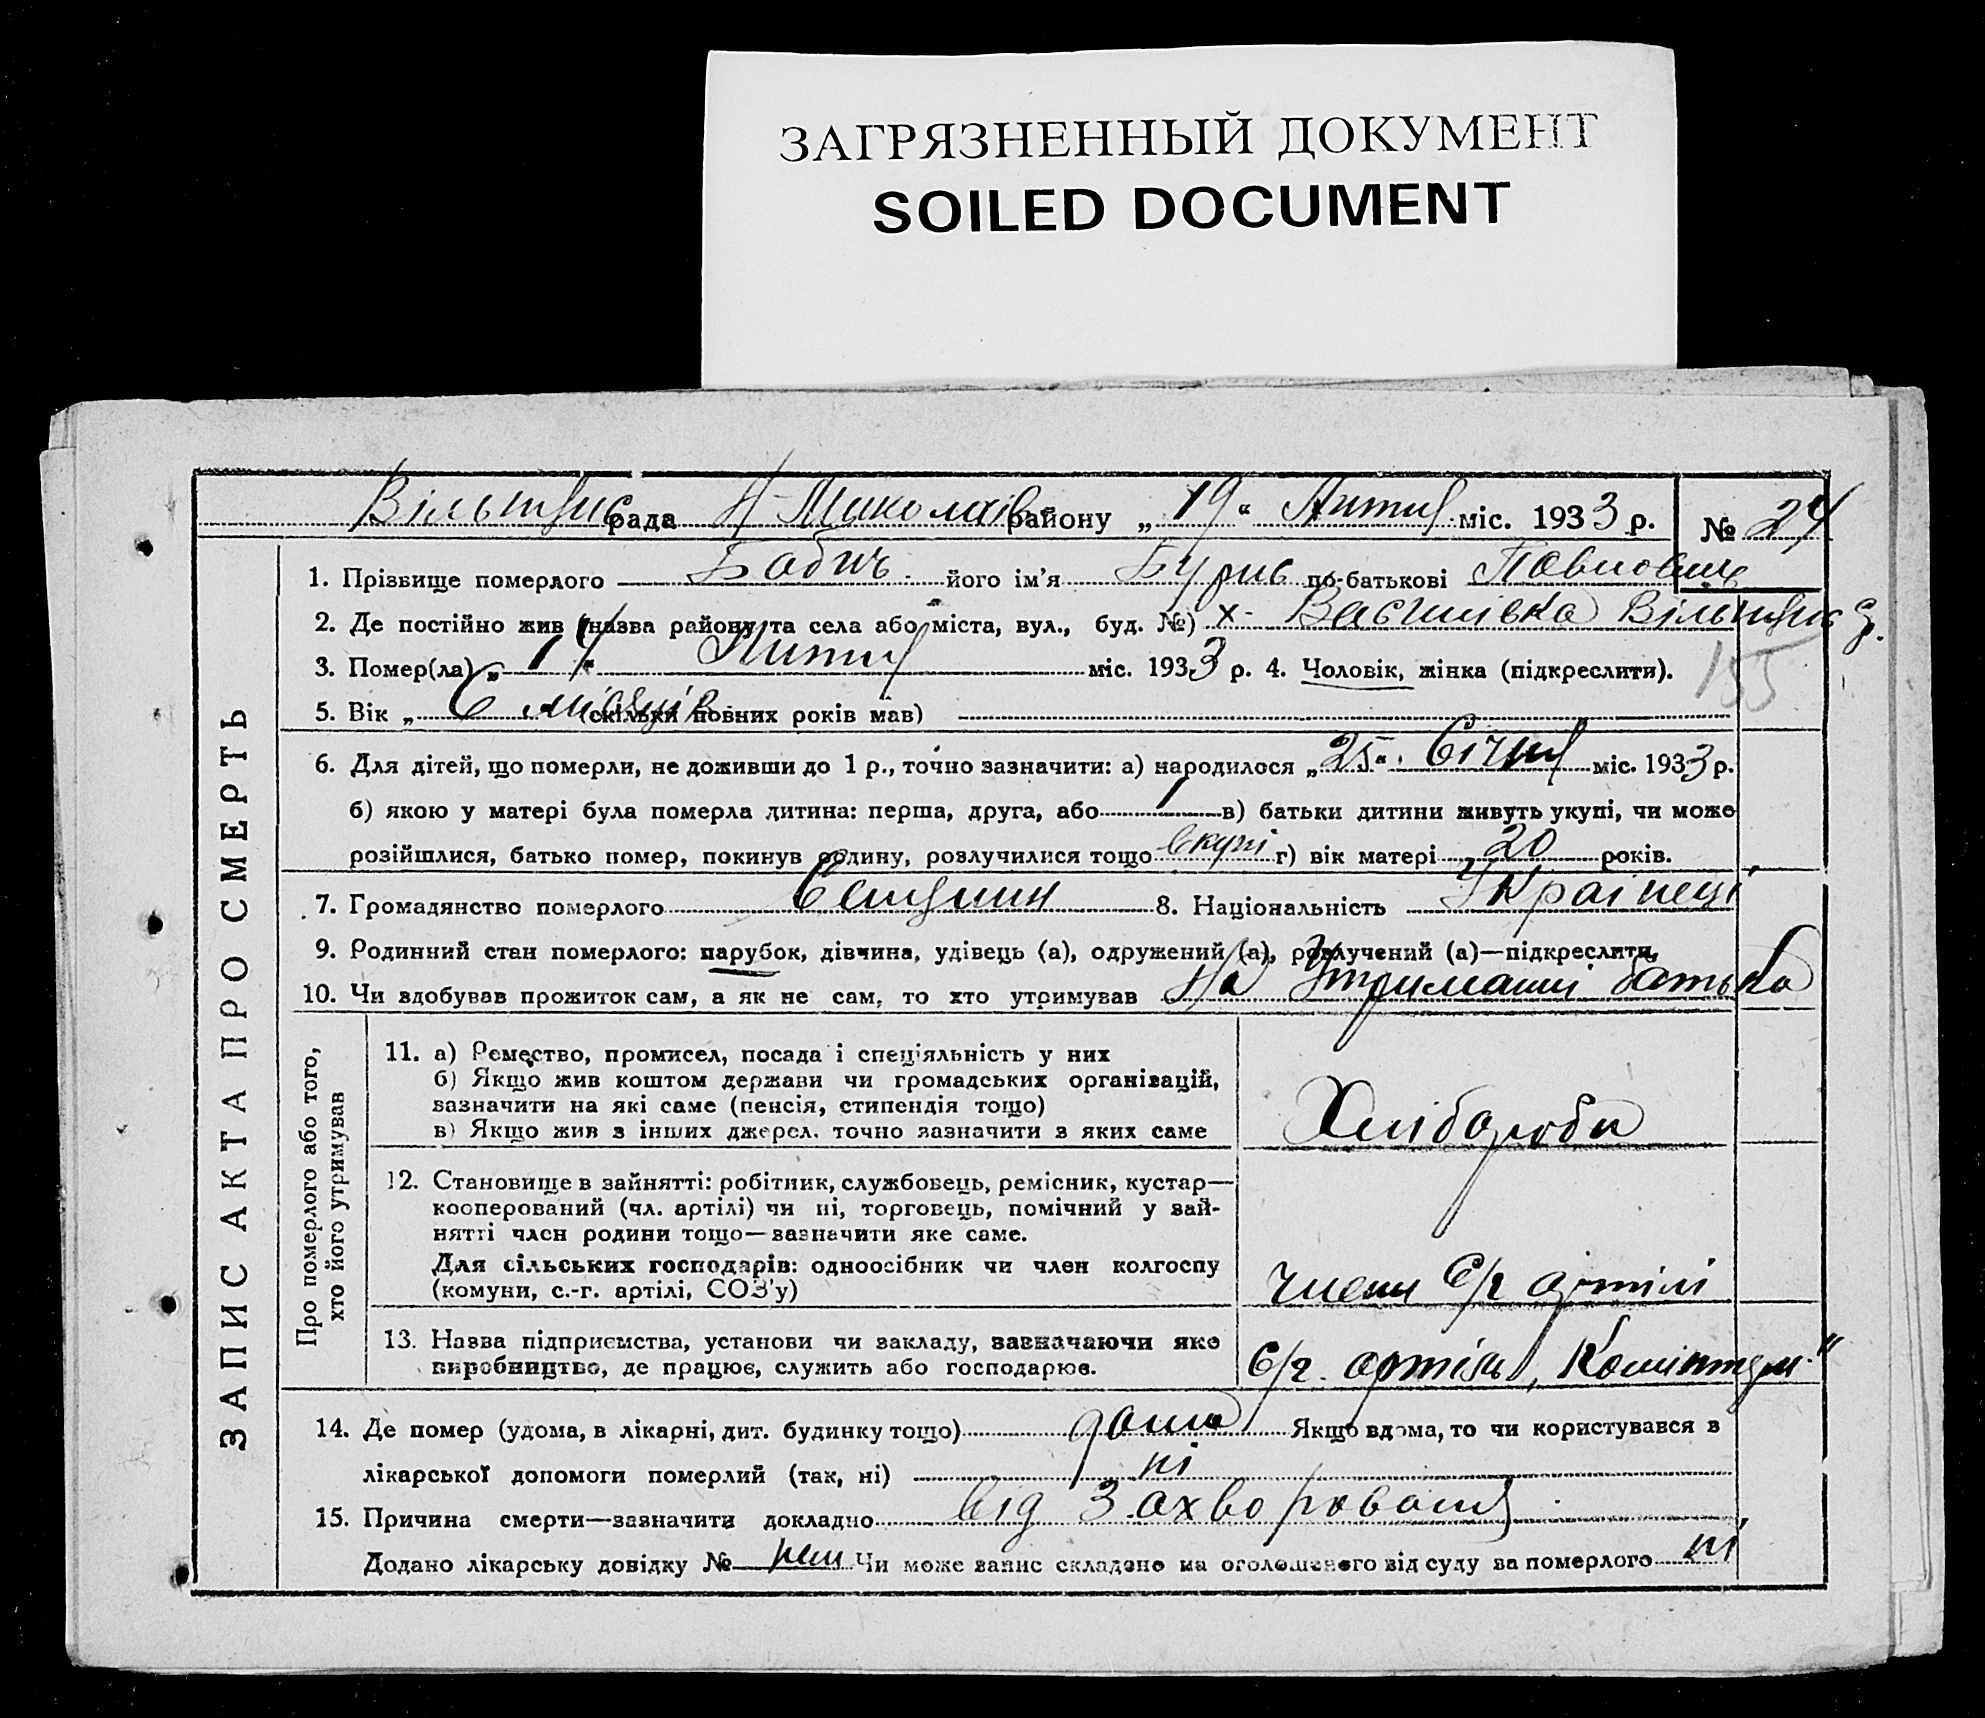 ЗАГРЯЗНЕННЫЙ ДОКУМЕНТ
SOILED DOCUMENT
рада Н-Миколаїв району „19“ Липня міс. 1933 р. № 24
1. Прізвище померлого Бабич його ім'я по-батькові Павлович
2. Де постійно жив (назва району та села або міста, вул., буд. №) х. Василівка
3. Помер(ла) „14“ Липня міс. 1933 р. 4. Чоловік, жінка (підкреслити).
155
5. Вік „6 місяців (скільки повних років мав)
6. Для дітей, що померли, не доживши до 1 р., точно зазначити: а) народилося „25“ Січня міс. 1933 р.
б) якою у матері була померла дитина: перша, друга, або 1 в) батьки дитини живуть укупі, чи може
розійшлися, батько помер, покинув родину, розлучилися тощо вкупі г) вік матері 20 років.
7. Громадянство померлого 8. Національність Українець
9. Родинний стан померлого: парубок, дівчина, удівець (а), одружений (а), розлучений (а)—підкреслити.
10. Чи здобував прожиток сам, а як не сам, то хто утримував На утриманні батька
ЗАПИС АКТА ПРО СМЕРТЬ
Про померлого або того,
хто його утримував
11. а) Ремество, промисел, посада і спеціяльність у них
б) Якщо жив коштом держави чи громадських організацій,
зазначити на які саме (пенсія, стипендія тощо)
в) Якщо жив з інших джерел, точно зазначити з яких саме
Хлібороби
12. Становище в зайнятті: робітник, службовець, ремісник, кустар—
кооперований (чл. артілі) чи ні, торговець, помічний у зай-
нятті член родини тощо—зазначити яке саме.
Для сільських господарів: одноосібник чи член колгоспу
(комуни, с.-г. артілі, СОЗ'у)
члени с/г артілі
13. Назва підприємства, установи чи закладу, зазначаючи яке
виробництво, де працює, служить або господарює.
С/г. артіль „Комінтерн“
14. Де помер (удома, в лікарні, дит. будинку тощо) дома Якщо вдома, то чи користувався в
лікарської допомоги померлий (так, ні) ні
15. Причина смерти—зазначити докладно від захворювання
Додано лікарську довідку № нем Чи може запис складено на оголошеного від суду за померлого ні